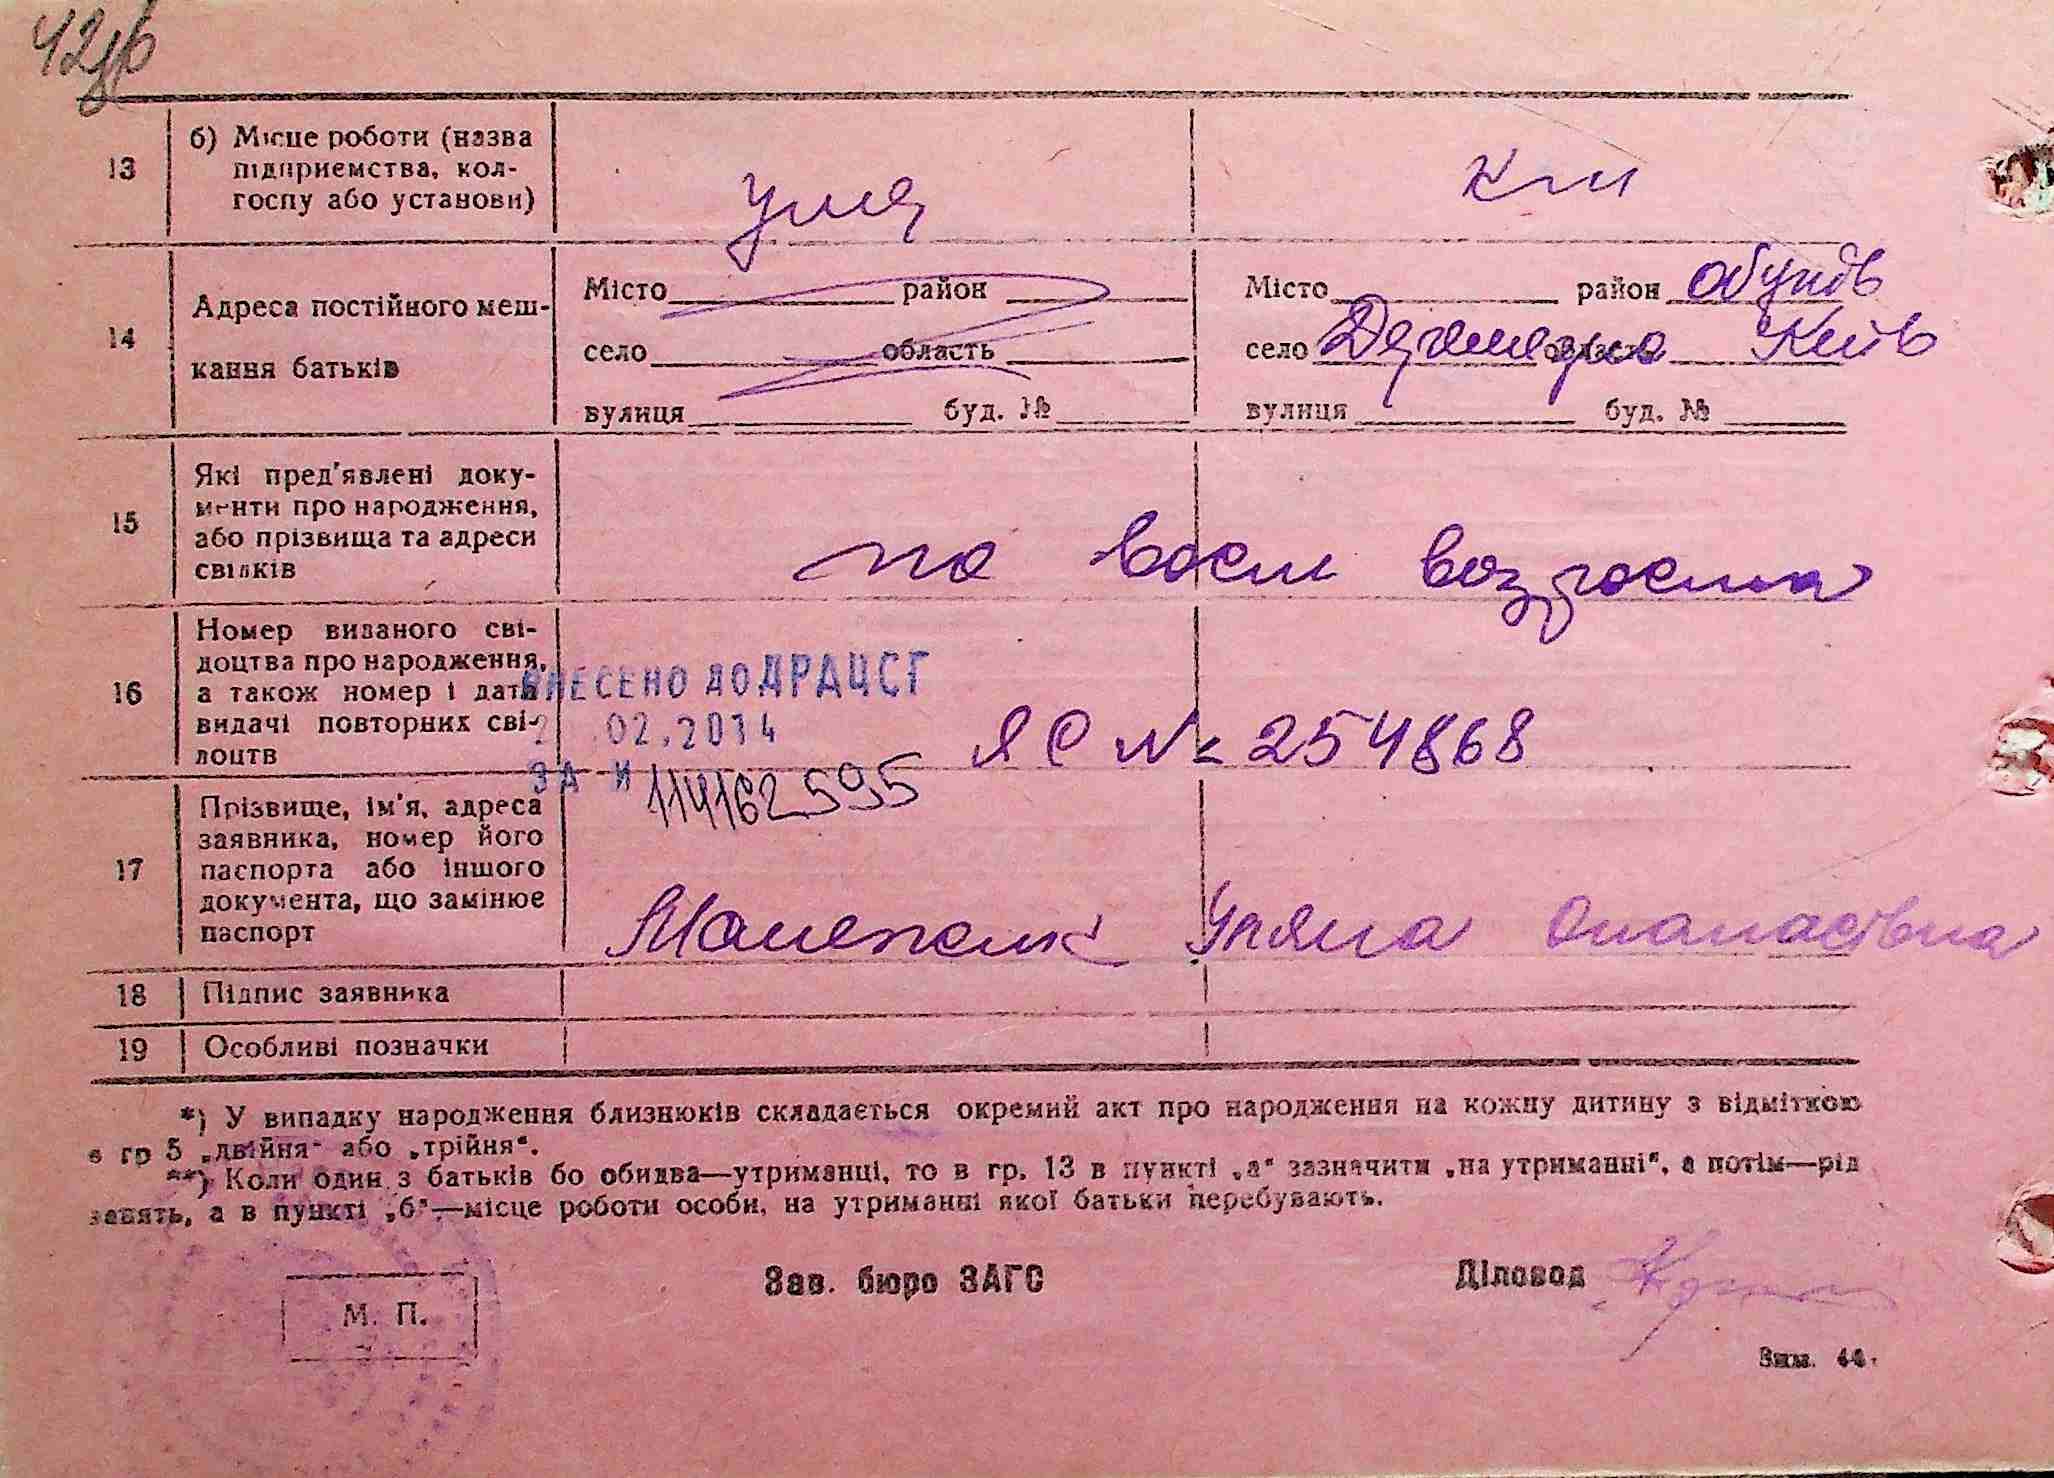 42
13
б) Місце роботи (назва
підприємства, кол-
госпу або установи)
14
Адреса постійного меш-
кання батьків
Місто район
село область
вулиця буд. №
Місто район
село область Київ
вулиця буд. №
15
Які пред'явлені доку-
менти про народження,
або прізвища та адреси
свідків
по восм возроста
16
Номер виданого сві-
доцтва про народження,
а також номер і дата
видачі повторних сві-
доцтв
ВНЕСЕНО ДО ДРАЦСГ
02.2014
ЗА № 114162595
ЯС № 254868
17
Прізвище, ім'я, адреса
заявника, номер його
паспорта або іншого
документа, що замінює
паспорт
Уляна Опанасівна
18
Підпис заявника
19
Особливі позначки
*) У випадку народження близнюків складається окремий акт про народження на кожну дитину з відміткою
в гр 5 „двійня" або „трійня".
**) Коли один з батьків бо обидва—утриманці, то в гр. 13 в пункті „а" зазначити „на утриманні", а потім—рід
занять, а в пункті „б"—місце роботи особи, на утриманні якої батьки перебувають.
Зав. бюро ЗАГС
Діловод
М. П.
Зам. 44